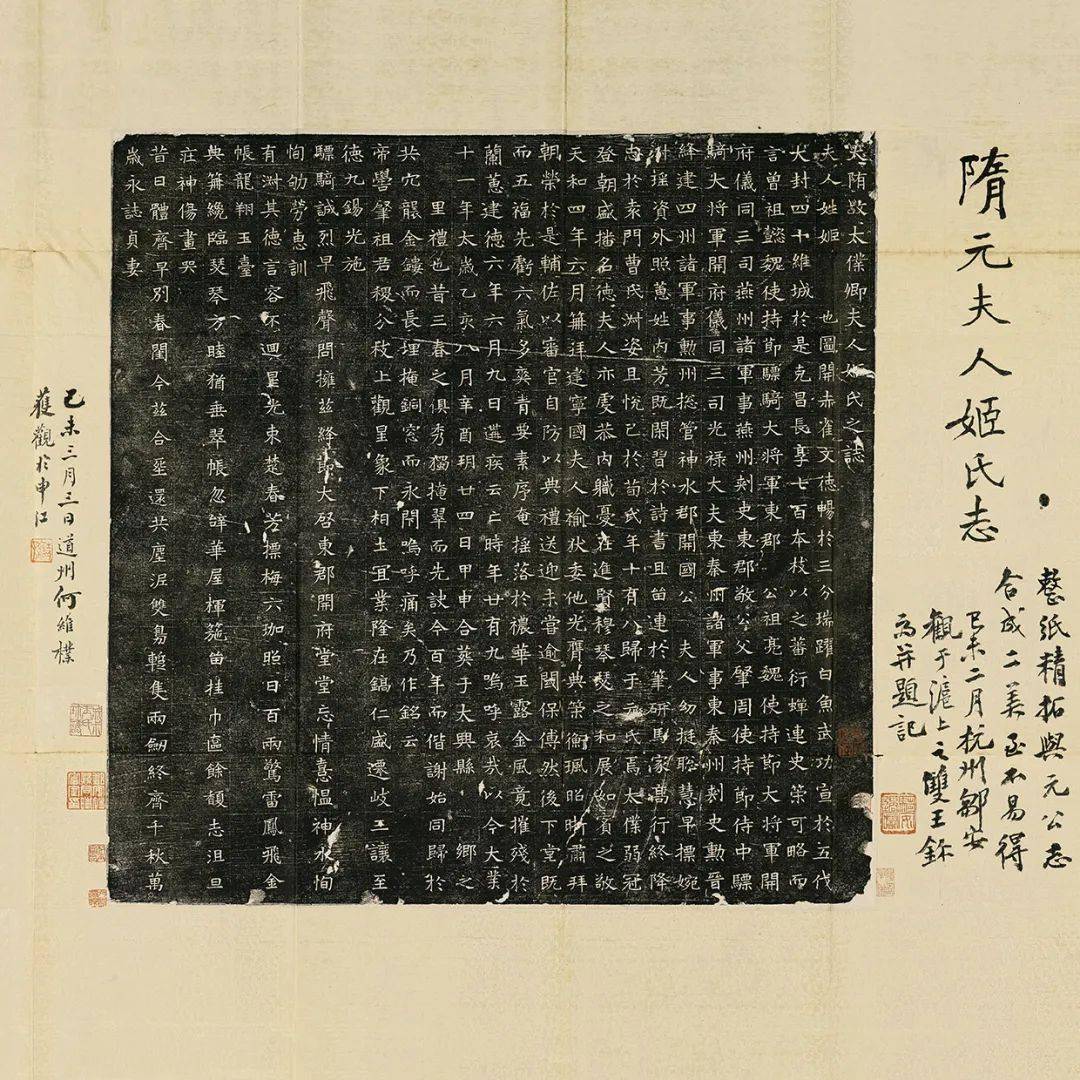 隋元夫人姬氏志
整紙精拓與元公志
合成二美至不易得
己未二月杭州鄒安
觀于滬上之雙王鉨
齋并題記
大隋故太僕卿夫人姬氏之誌
夫人姓姬 也圖開赤雀文德暢於三分瑞躍白魚武功宣於五代
大封四十維城於是克昌長享七百本枝以之蕃衍蟬連史筞可略而
言曾祖懿魏使持節驃騎大將軍東郡 公祖亮魏使持節大將軍開
府儀同三司燕州諸軍事燕州刾史東郡敬公父肇周使持節侍中驃
騎大將軍開府儀同三司光祿大夫東秦州諸軍事東秦州刾史勳晉
絳建四州諸軍事勳州揔管神水郡開國公 夫人幼挺聡慧早標婉
淑瑤資外照蕙姓内芳既閑習於詩書且留連於筆研馬家高行終降
志於袁門曹氏淑姿且悅己於荀氏年十有八歸于元氏焉太僕弱冠
登朝盛播名德夫人亦虔恭内軄憂在進賢穆琴瑟之和展如賓之敬
天和四年六月莭拜建寧國夫人褕狄委他光膺典筞衡珮昭晣肅拜
朝榮於是輔佐以審官自防以典禮送迎未嘗逾閾保傅然後下堂既
而五福先虧六氣多爽青要素序奄搖落於禯華玉露金風竟摧殘於
蘭蕙建德六年六月九日遘疾云亡時年廿有九嗚呼哀哉以今大業
十一年太歲乙亥八月辛酉玥廿四日甲申合葬于大興縣 鄉之
里禮也昔三春之俱秀獨掩翠而先訣今百年而偕謝始同歸於
共穴襲金鏤而長埋掩銅窓而永閇嗚呼痛矣乃作銘云
帝嚳肇祖君稷分枝上觀星象下相土宜業隆在鎬仁盛遷岐三讓至
德九錫光施
驃騎誠烈早飛聲問擁茲絳節大啓東郡開府堂堂忘情憙愠神水恂
恂劬勞惠訓
有淑其德言容不迴星光束楚春芳摽梅六珈照日百兩驚雷鳳飛金
帳龍翔玉臺
典莭纔臨瑟琴方睦猶垂翠帳忽辭華屋楎箷留挂巾區餘馥志沮旦
莊神傷晝哭
昔日體齊早別春閨今茲合塟還共塵泥雙鳧蹔集兩劒終齊千秋萬
歲永誌貞妻
己未三月三日道州何維樸
獲觀於申江